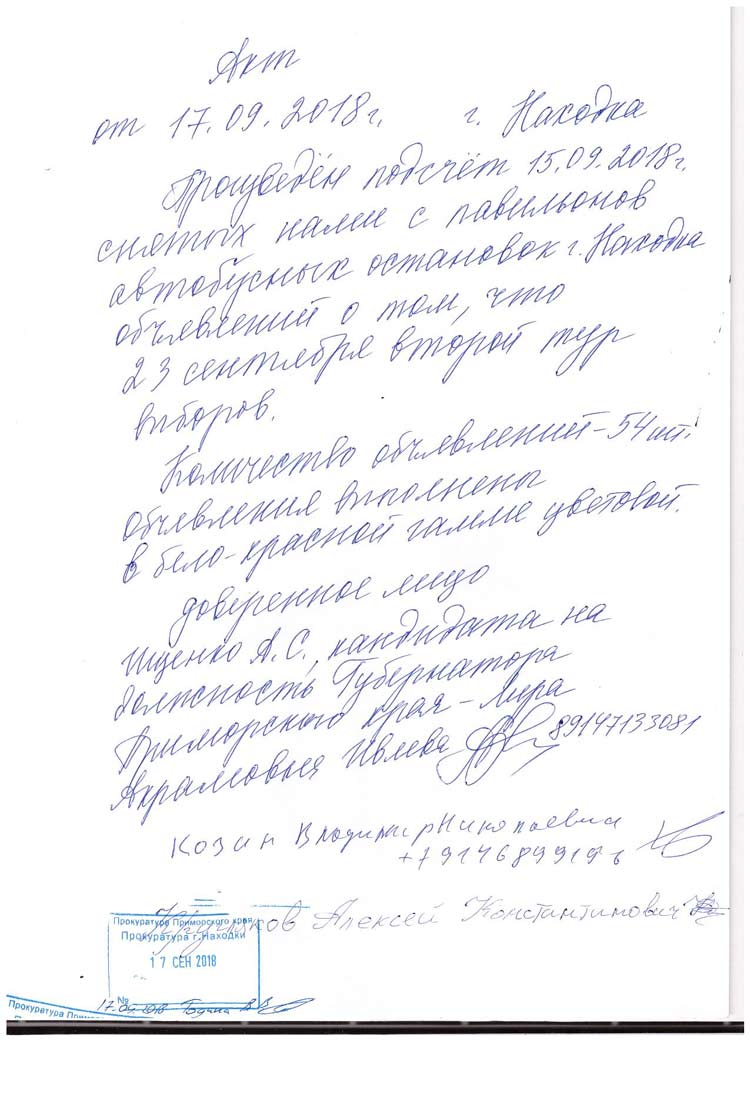 Акт
от 17.09.2018г. г. Находка
Произведён подсчёт 15.09.2018г.
снятых нами с павильонов
автобусных остановок г. Находка
объявлений о том, что
23 сентября второй тур
выборов.
Количество объявлений - 54 шт.
объявления выполнены
в бело-красной гамме цветовой.
доверенное лицо
Ищенко А.С., кандидата на
должность Губернатора
Приморского края - Мира
Акрамовна Ивлева 89147133081
Козин Владимир Николаевич
+791468991
Алексей Константинович
Прокуратура Приморского края
Прокуратура г. Находки
17 СЕН 2018
№
Прокуратура